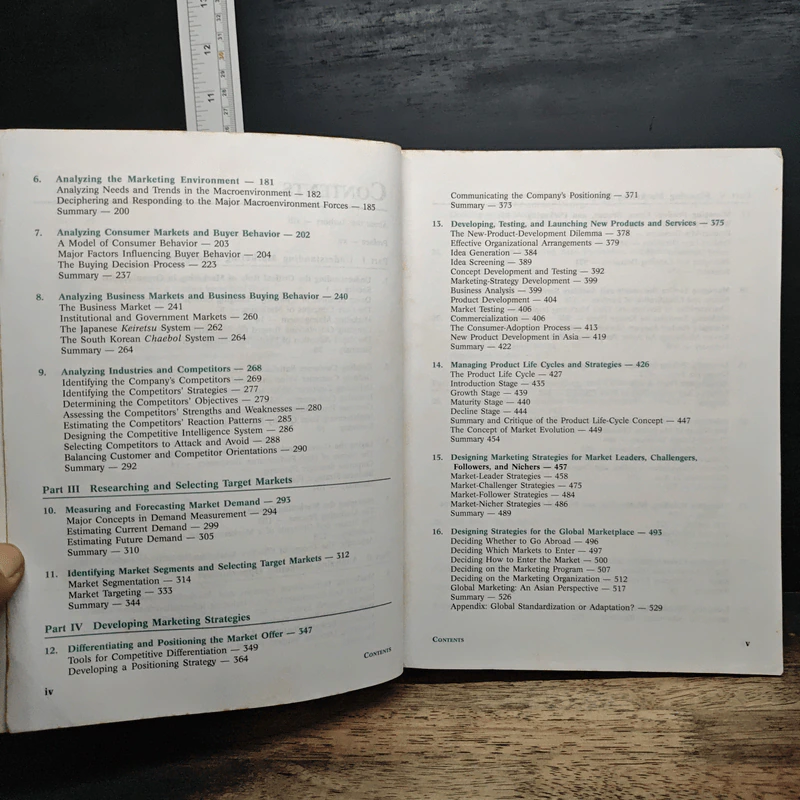 13
12
11
6. Analyzing the Marketing Environment — 181
Analyzing Needs and Trends in the Macroenvironment — 182
Deciphering and Responding to the Major Macroenvironment Forces — 185
Summary — 200
7. Analyzing Consumer Markets and Buyer Behavior — 202
A Model of Consumer Behavior — 203
Major Factors Influencing Buyer Behavior — 204
The Buying Decision Process — 223
Summary — 237
8. Analyzing Business Markets and Business Buying Behavior — 240
The Business Market — 241
Institutional and Government Markets — 260
The Japanese Keiretsu System — 262
The South Korean Chaebol System — 264
Summary — 264
9. Analyzing Industries and Competitors — 268
Identifying the Company's Competitors — 269
Identifying the Competitors' Strategies — 277
Determining the Competitors' Objectives — 279
Assessing the Competitors' Strengths and Weaknesses — 280
Estimating the Competitors' Reaction Patterns — 285
Designing the Competitive Intelligence System — 286
Selecting Competitors to Attack and Avoid — 288
Balancing Customer and Competitor Orientations — 290
Summary — 292
Part III Researching and Selecting Target Markets
10. Measuring and Forecasting Market Demand — 293
Major Concepts in Demand Measurement — 294
Estimating Current Demand — 299
Estimating Future Demand — 305
Summary — 310
11. Identifying Market Segments and Selecting Target Markets — 312
Market Segmentation — 314
Market Targeting — 333
Summary — 344
Part IV Developing Marketing Strategies
12. Differentiating and Positioning the Market Offer — 347
Tools for Competitive Differentiation — 349
Developing a Positioning Strategy — 364
Contents
iv
Communicating the Company's Positioning — 371
Summary — 373
13. Developing, Testing, and Launching New Products and Services — 375
The New-Product-Development Dilemma — 378
Effective Organizational Arrangements — 379
Idea Generation — 384
Idea Screening — 389
Concept Development and Testing — 392
Marketing-Strategy Development — 399
Business Analysis — 399
Product Development — 404
Market Testing — 406
Commercialization — 406
The Consumer-Adoption Process — 413
New Product Development in Asia — 419
Summary — 422
14. Managing Product Life Cycles and Strategies — 426
The Product Life Cycle — 427
Introduction Stage — 435
Growth Stage — 439
Maturity Stage — 440
Decline Stage — 444
Summary and Critique of the Product Life-Cycle Concept — 447
The Concept of Market Evolution — 449
Summary 454
15. Designing Marketing Strategies for Market Leaders, Challengers,
Followers, and Nichers — 457
Market-Leader Strategies — 458
Market-Challenger Strategies — 475
Market-Follower Strategies — 484
Market-Nicher Strategies — 486
Summary — 489
16. Designing Strategies for the Global Marketplace — 493
Deciding Whether to Go Abroad — 496
Deciding Which Markets to Enter — 497
Deciding How to Enter the Market — 500
Deciding on the Marketing Program — 507
Deciding on the Marketing Organization — 512
Global Marketing: An Asian Perspective — 517
Summary — 526
Appendix: Global Standardization or Adaptation? — 529
Contents
v